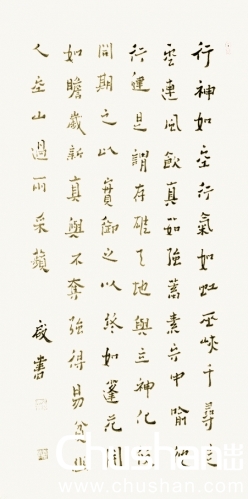 行神如空行氣如虹巫峽千尋走
雲連風飲真茹強蓄素守中喻他
行健是謂存雄天地與立神化攸
同期之以實御之以終如逢花開
如瞻歲新真與不奪強得易貧幽
人空山過雨采蘋
書
Chushan